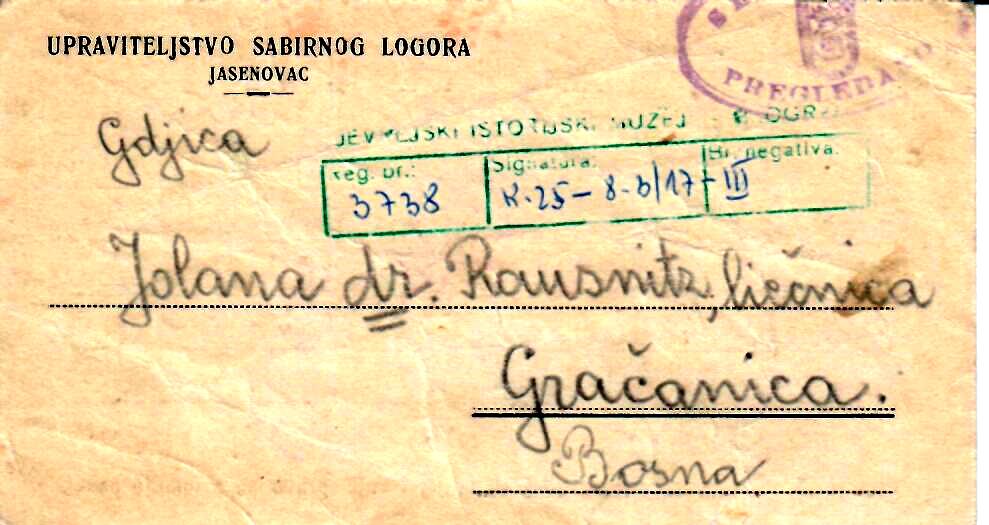 UPRAVITELJSTVO SABIRNOG LOGORA
JASENOVAC
PREGLEDA
Gdjica
JEVREJSKI ISTORIJSKI MUZEJ
reg. br.: Signatura: Br. negativa:
3738 K.25-8-3/17-III
Jolana dr. Rausnitz, liečnica
Gračanica.
Bosna